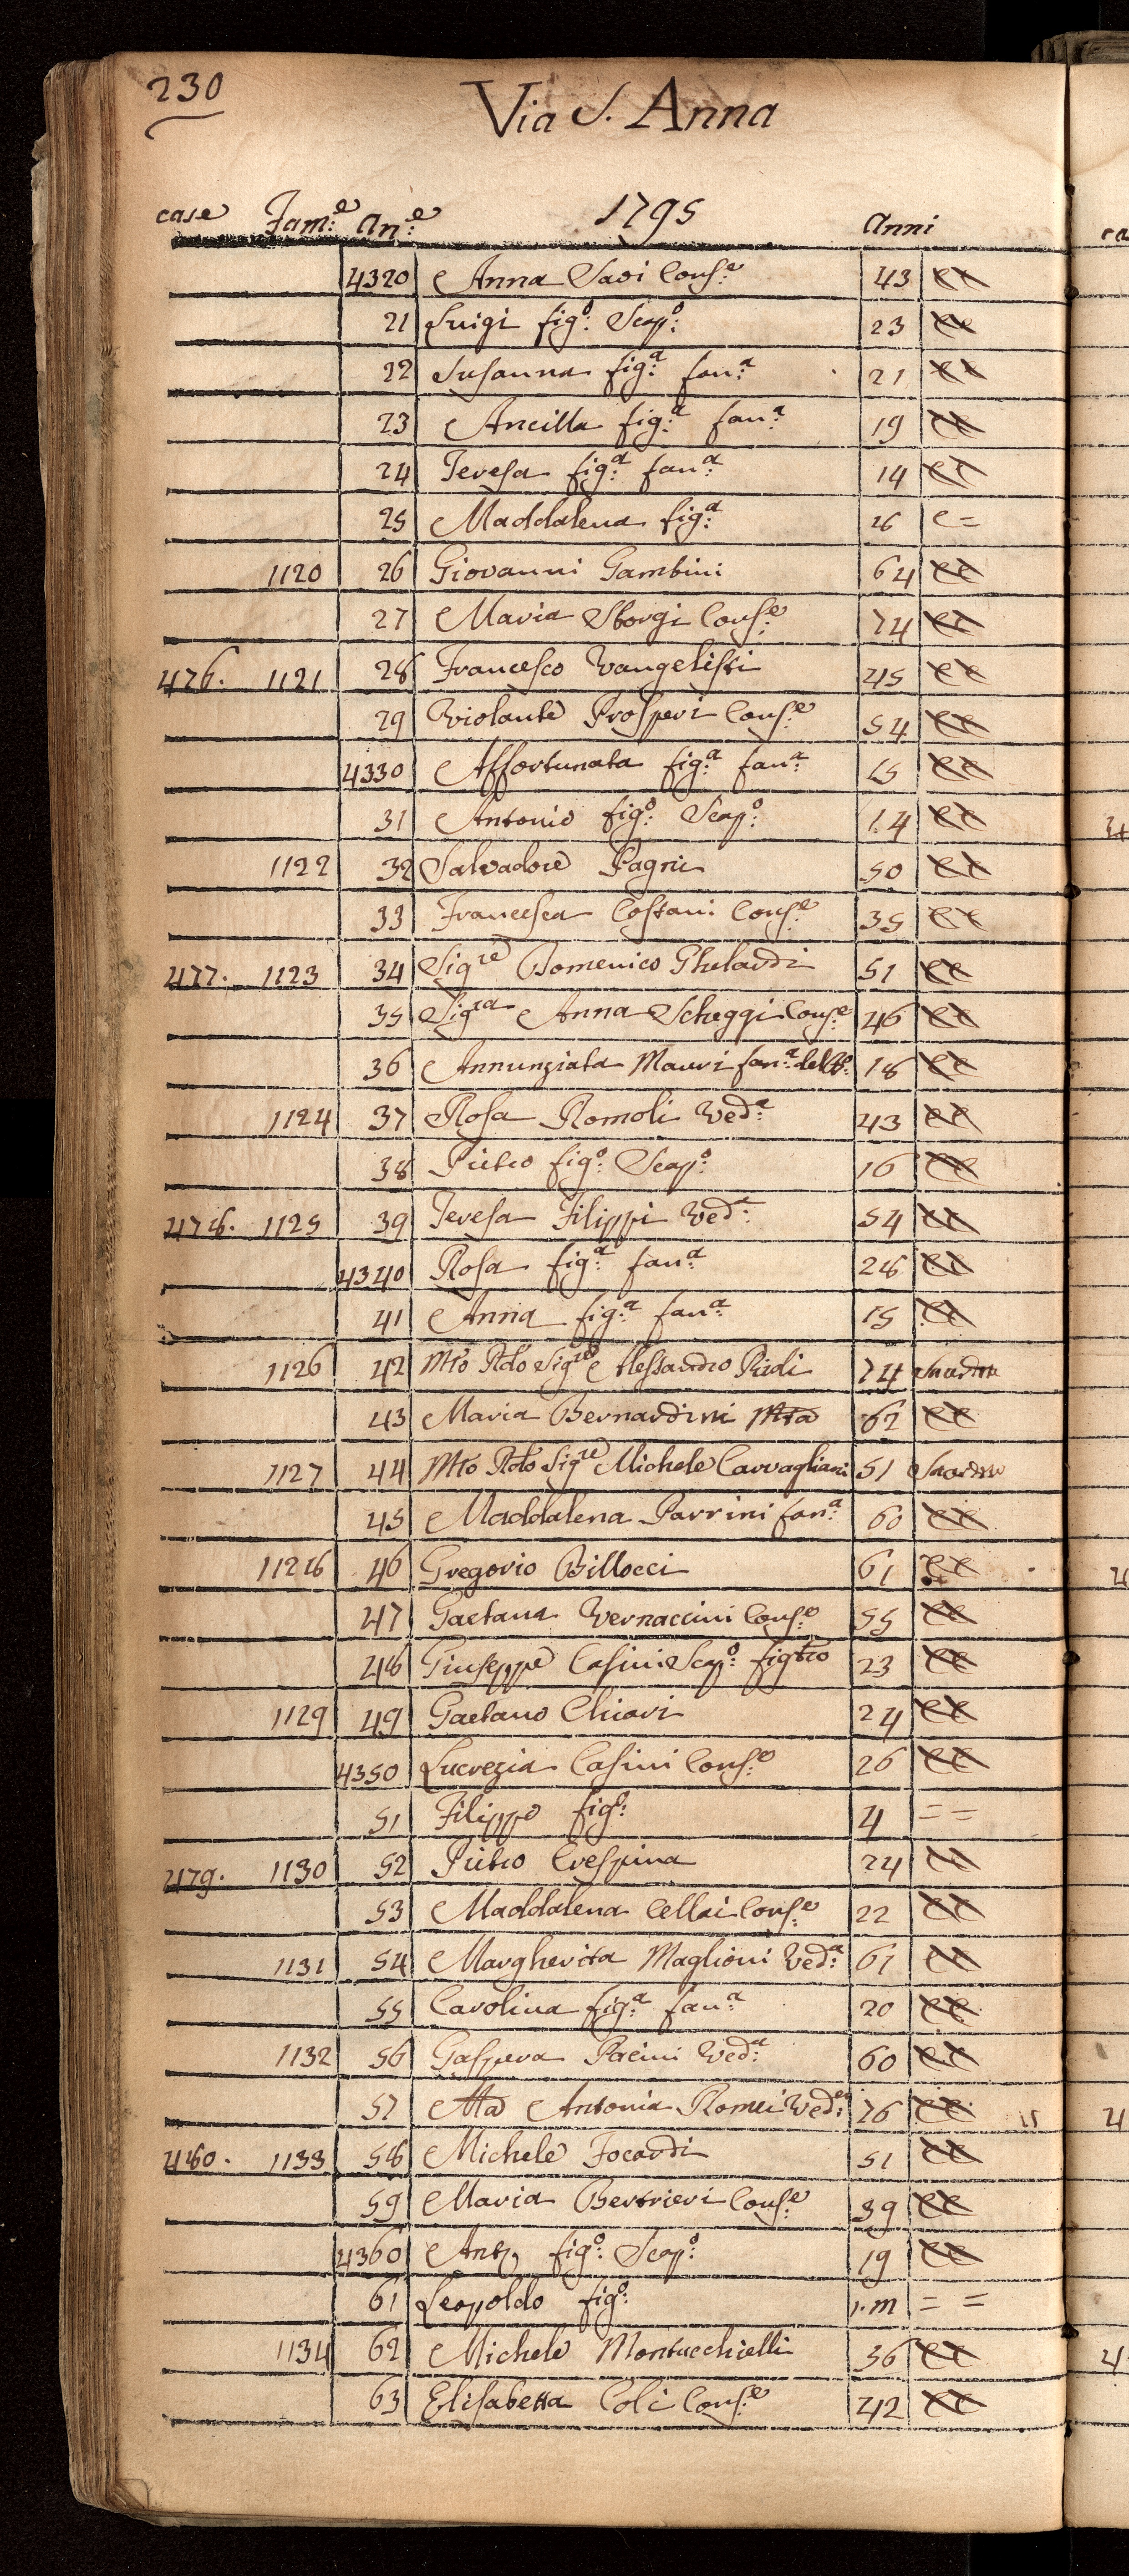 230
Via S. Anna
case Fam:e An:e 1795 Anni
4320 Anna Savi Cons:e 43 ee
21 Luigi fig:o Scap:o 23 ee
22 Susanna fig:a fan:a 21 ee
23 Ancilla fig:a fan:a 19 ee
24 Teresa fig:a fan:a 14 ee
25 Maddalena fig:a e =
1120 26 Giovanni Gambini 64 ee
27 Maria Sborgi Cons:e 74 ee
476. 1121 28 Francesco Vangelisti 45 ee
29 Violante Prosperi Cons:e 54 ee
4330 Affortunata fig:a fan:a 15 ee
31 Antonio fig:o Scap:o 14 ee
1122 32 Salvadore Pagni 50 ee
33 Francesca Costani Cons:e 35 ee
477. 1123 34 Sigre Domenico Ghelardi 51 ee
35 Sigra Anna Scheggi Cons:e 46 ee
36 Annunziata Mauri fan:a 18 ee
1124 37 Rosa Romoli Ved:a 43 ee
38 Pietro fig:o Scap:o 16 ee
478. 1125 39 Teresa Filippi Ved:a 54 ee
4340 Rosa fig:a fan:a 28 ee
41 Anna fig:a fan:a 15 ee
1126 42 Mto Rdo Sigre Alessandro 74
43 Maria Bernardini 62 ee
1127 44 Mto Rdo Sigre Michele Carvagliani 51
45 Maddalena Parrini fan:a 60 ee
1128 46 Gregorio Billocci 61 ee
47 Gaetana Vernaccini Cons:e 55 ee
48 Giuseppe Casini Scap:o figtro 23 ee
1129 49 Gaetano Chiari 24 ee
4350 Lucrezia Casini Cons:e 26 ee
51 Filippo fig:o 4 = =
479. 1130 52 Pietro Crespina 24 ee
53 Maddalena Cellai Cons:e 22 ee
1131 54 Margherita Maglioni Ved:a 61 ee
55 Carolina fig:a fan:a 20 ee
1132 56 Gaspera Pacini Ved:a 60 ee
57 Antonia Romei Ved:a 76 ee
480. 1133 58 Michele Focardi 51 ee
59 Maria Bertrieri Cons:e 39 ee
4360 Ant:o fig:o Scap:o 19 ee
61 Leopoldo fig:o 1.m = =
1134 62 Michele Montucchielli 36 ee
63 Elisabetta Coli Cons:e 42 ee